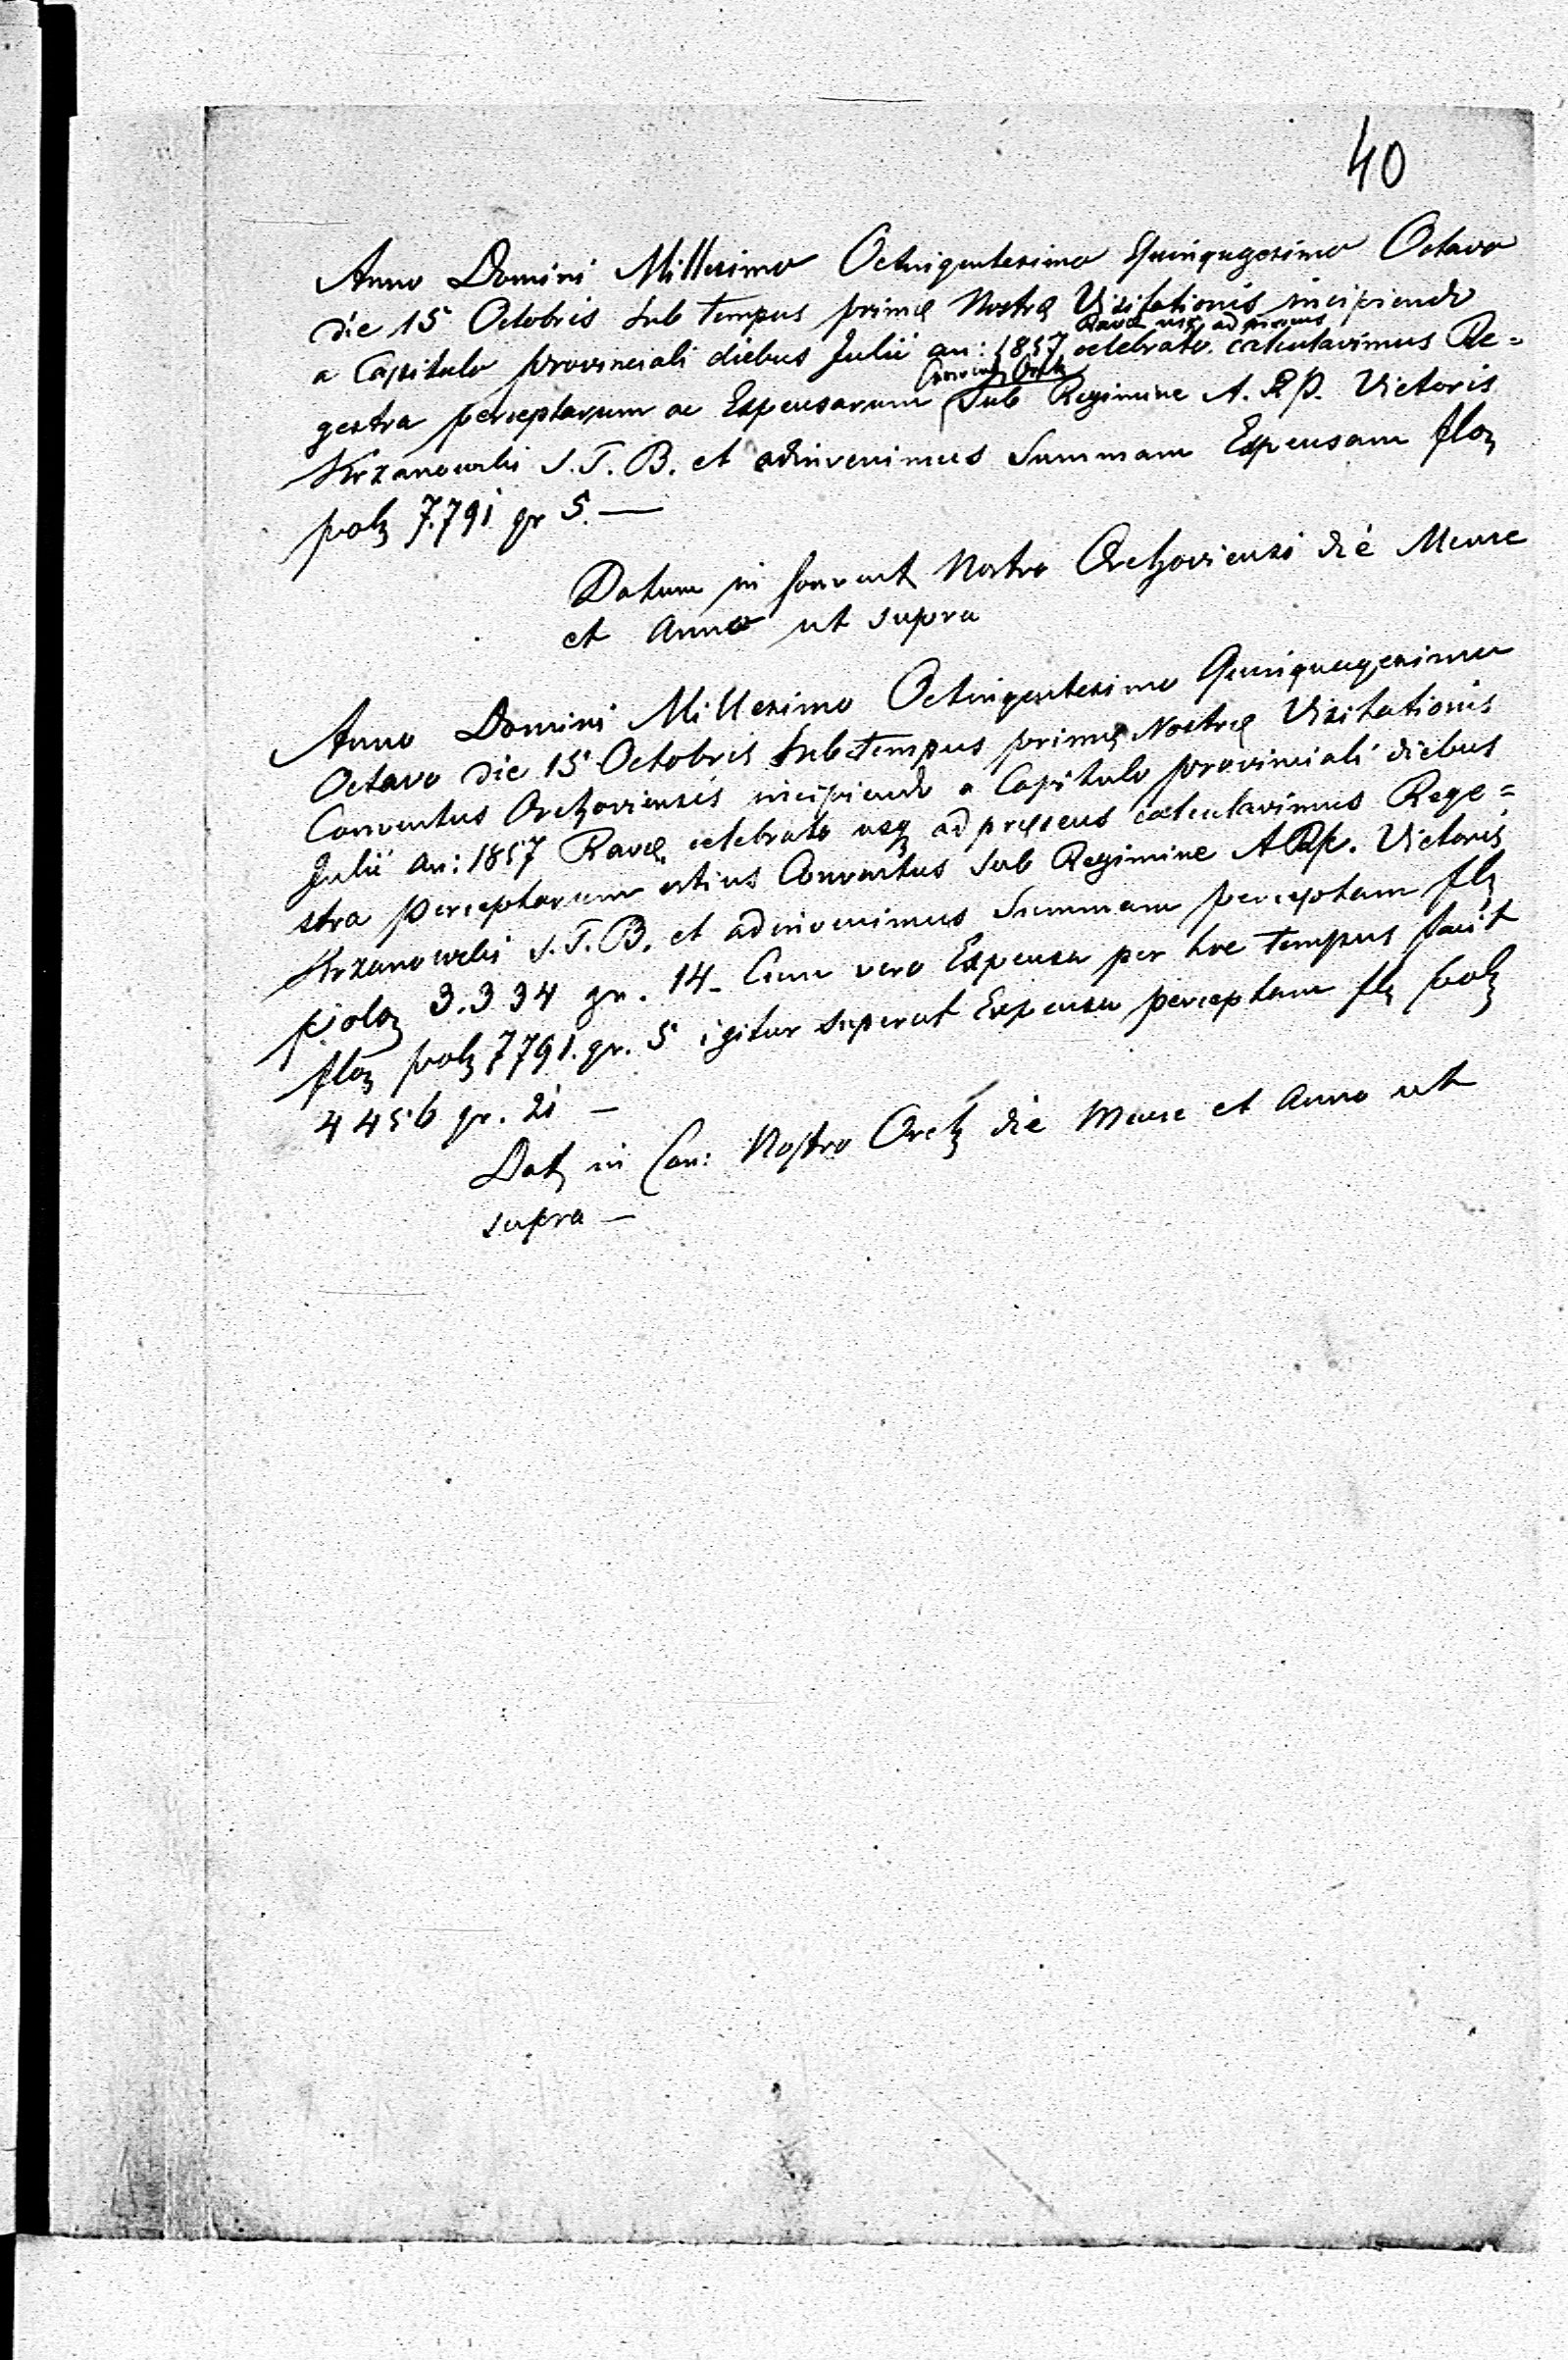 40
Anno Domini Millesimo Octuigentesimo Quinqugesimo Octavo
die 15 Octobris sub tempus primę Nostrę Visitationis incipiendo
Ravę usq ad presens
a Capitulo provinciali diebus Julii an: 1857 celebrato calculavimus Re=
Convent Orch
gestra perceptarum ac Expensarum sub Regimine A. R P. Victoris
Krzanowski S. T. B. et adinvenimus Summam Expensam flor
pol 7.791 gr 5. —
Datum in Convent Nostro Orchoviensi die Mense
et Anno ut supra
Anno Domini Millesimo Octingentesimo Quinquagesimo
Octavo die 15 Octobris sub tempus primę Nostrę Visitationis
Conventus Orchoviensis incipiendo a Capitulo provinciali diebus
Julii an: 1857 Ravę celebrato usq ad pręsens calculavimus Rege=
stra perceptarum istius Conventus sub Regimine A R p. Victoris
Krzanowski S. T. B. et adinvenimus Summam perceptam fl
polon 3.334 gr. 14 - Cum vero Expensa per hoc tempus facit
flor pol 7791. gr. 5 igitur superat Expensa perceptam fl pol
4456 gr. 21 —
Dat in Con: Nostro Orch die Mense et Anno ut
supra —